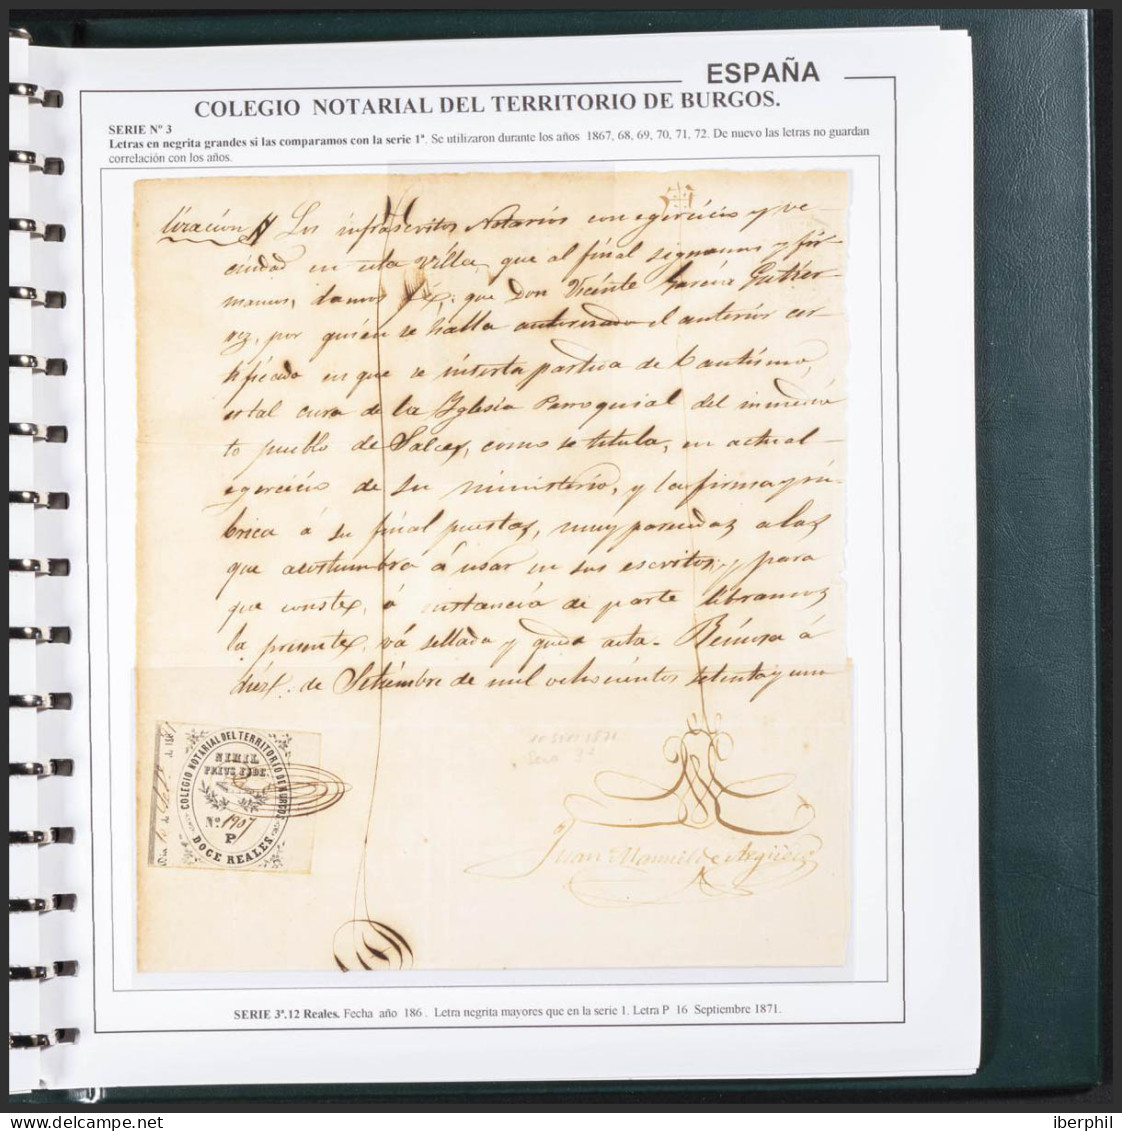 ESPAÑA
COLEGIO NOTARIAL DEL TERRITORIO DE BURGOS.
SERIE Nº 3
Letras en negrita grandes si las comparamos con la serie 1ª. Se utilizaron durante los años 1867, 68, 69, 70, 71, 72. De nuevo las letras no guardan
correlación con los años.
lización Los infrascritos Notarios con egercicio y ve-
cindad en esta Villa, que al final signamos y fir-
mamos, damos fé, que Don Vicente Garcia Gutier-
rez, por quien se halla autorizado el anterior cer-
tificado en que se inserta partida de bautismo,
es tal cura de la Yglesia Parroquial del inmedia
to pueblo de Salces, como se titula, en actual
egercicio de su ministerio, y la firma y rú-
brica á su final puestas, muy parecidas a las
que acostumbra á usar en sus escritos, y para
que conste, á instancia de parte libramos
la presente, vá sellada y queda acta. Reinosa á
diez de Setiembre de mil ochocientos setenta y uno
COLEGIO NOTARIAL DEL TERRITORIO DE BURGOS
NIHIL
PRIUS FIDE
Nº 1907
P
DOCE REALES
Juan Manuel de Argüeso
SERIE 3ª.12 Reales. Fecha año 186 . Letra negrita mayores que en la serie 1. Letra P 16 Septiembre 1871.
iberphil